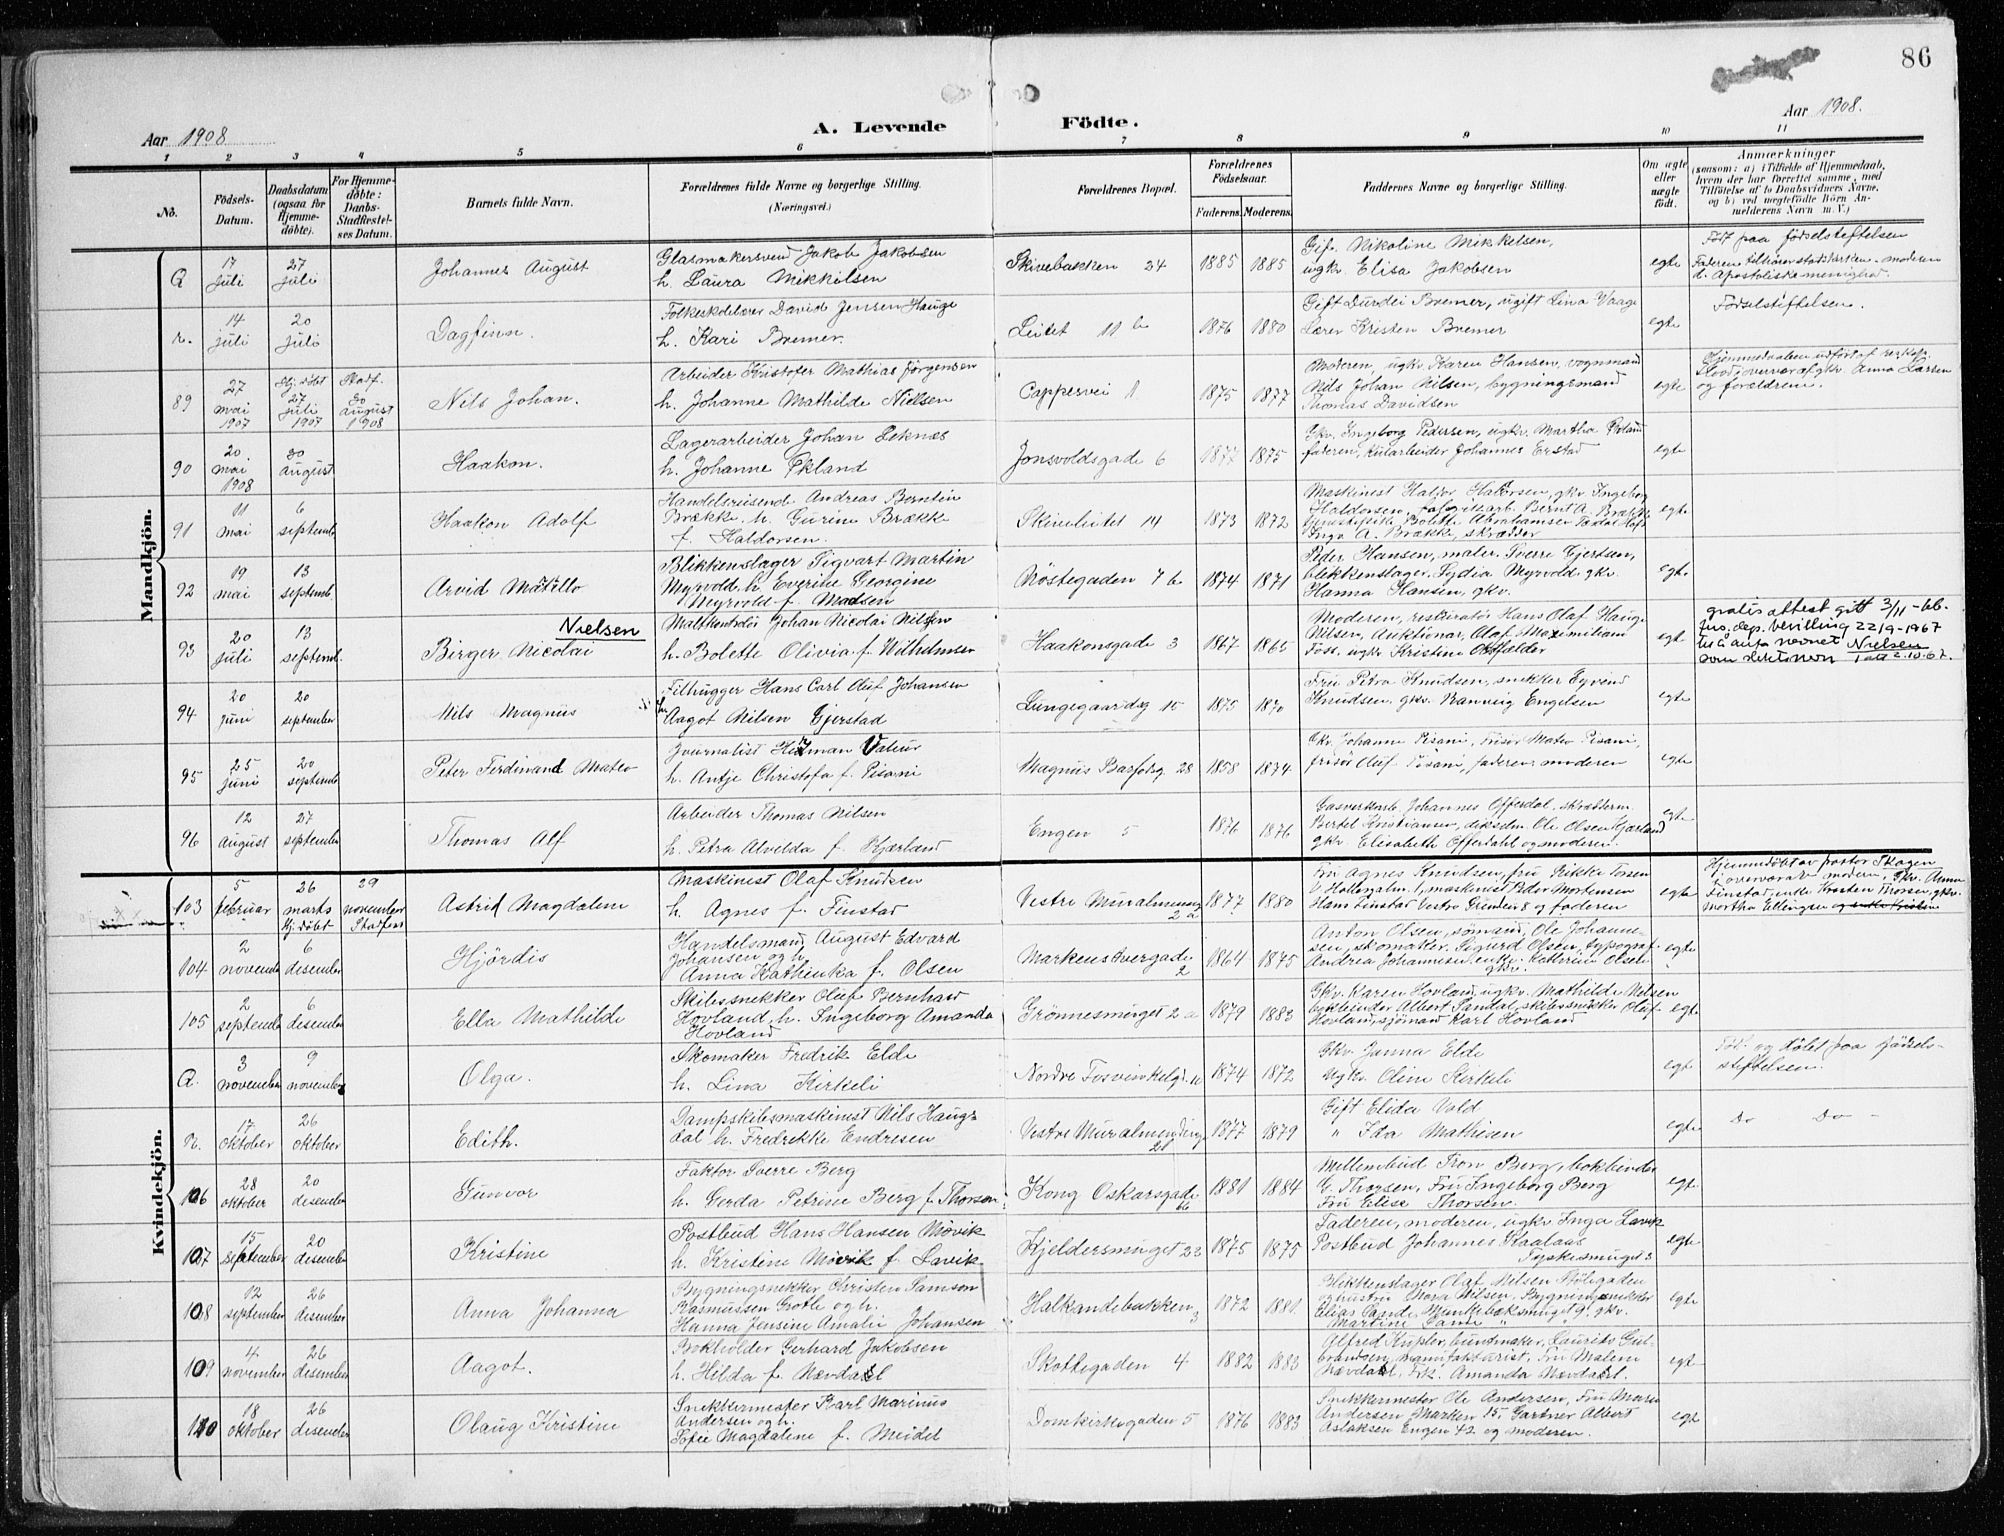 86
Aar 1908
A. Levende Födte.
Aar 1908.
1 2 3 4 5 6 7 8 9 10 11
No.
Födsels-Datum.
Daabsdatum (ogsaa for Hjemmedöbte).
For Hjemmedöbte: Daabs-Stadfestelses Datum.
Barnets fulde Navn.
Forældrenes fulde Navne og borgerlige Stilling.
(Næringsvei.)
Forældrenes Bopæl.
Forældrenes Födselsaar.
Faderens. Moderens.
Faddernes Navne og borgerlige Stilling.
Om ægte eller uægte födt.
Anmærkninger
(saasom: a) i Tilfælde af Hjemmedaab, hvem der har forrettet samme, med Tilföielse af to Daabsvidners Navne, og b) ved uegtefödte Börn Anmelderens Navn m. V.)
Mandkjön.
Q 17 juli 27 juli Johannes August
Glasmakersvend Jakob Jakobsen
h. Laura Mikkelsen
Skivebakken 24 1885 1885
Gift Nikoline Mikkelsen,
ugkv. Elisa Jakobsen
egte
Født paa fødselstiftelsen
r. 14 juli 20 juli Dagfinn.
Folkeskolelærer David Jensen Hauge
h. Kari Bremer.
Leitet 11 b 1876 1880
Gift Durdei Bremer, ugift Lina Vaage
Lærer Kristen Bremer
egte
Fødselstiftelsen.
89 27 mai 1907 Hj. døbt 27 juli 1907 Stadf. 30 august 1908 Nils Johan.
Arbeider Kristofer Mathias Jörgensen
h. Johanne Mathilde Nielsen
Cappesvei 11 1875 1877
Moderen, ugkv. Karen Hansen, vognmand
Nils Johan Nilsen, bygningsmand
Thomas Davidsen
egte
og forældrene.
90 20. mai 1908 30 august Haakon.
Lagerarbeider Johan Leknæs
h. Johanne Ekland
Jonsvoldsgade 6 1877 1875
Gkv. Ingeborg Pedersen, ugkv. Martha
faderen, kularbeider Johannes Erstad
egte
91 11 mai 6 september Haakon Adolf
Handelsreisende Andreas Berntin
Brække, h. Gurine Brække
f. Haldorsen.
Skiveleitet 14 1873 1872
Maskinest Haldor Haldorsen, gkv Ingeborg
Haldorsen, Bernt A. Brække
Inga A. Brække, skrædder
egte
92 19 mai 13 septemb. Arvid Martello
Blikkenslager Sigvart Martin
Myrvold, h. Everine Georgine
Myrvold f. Madsen
Nöstegaden 7 b 1874 1871
Peder Hansen, maler. Sverre Gjertsen,
blikkenslager, Lydia Myrvold. gkv.
Hanna Hansen, gkv.
egte
93 20 juli 13 septemb. Birger Nicolai Nielsen
Johan Nicolai Nilsen
h. Bolette Olivia f. Wilhelmsen
Haakonsgade 3 1867 1865
Moderen, restauratør Hans Olaf Hauge
Nilsen, Auktionar. Olaf Maximiliam
Foss, ugkv. Kristine Ostfelder
egte
gratis attest gitt 3/11-66.
Jus. dep. bevilling 22/9-1967
til å anta navnet Nielsen
som slektsnavn 2.10.67.
94 20 juni 20 september Nils Magnus
Filhugger Hans Carl Oluf Johansen
Aagot Nilsen Gjerstad
Lungegaardsg 15 1875 1870
Fru Petra Knudsen, snekker Eyvind
Knudsen, gkv. Rannveig Engelsen
egte
95 25 juni 20 septemb. Peter Ferdinand Mateo
Journalist Herman Valeur
h. Antje Christofa f. Pisani
Magnus Barfotsg. 28 1858 1874
Gkv. Johanne Pisani, Frisör Mateo Pisani,
frisör Oluf Pisani, faderen moderen
egte
96 12 august 27 september Thomas Alf
Arbeider Thomas Nilsen
h. Petra Alvelda f. Kjærland
Engen 5 1876 1876
Gasverksarb. Johannes Offerdal, skræddern.
Bertel Kristiansen, Ole Olsen Kjærland
gkv. Elisabeth Offerdahl og moderen.
egte
Kvindekjön.
103 5 februar 26 marts hj. døbt 29 november Stadfest Astrid Magdalene
Maskinest Olaf Knudsen
h. Agnes f. Finstad
Vestre Muralmenning 2 a 1877 1880
Fru Agnes Knudsen, fru Rikke Torsen
V. Holbergalm. 1, maskinest Peder Mortensen
Hans Finstad og faderen
egte
Hjemmedöbt av pastor Skagen
i overvær av moderen, Gkv. Anna
Finstad, enke Karsten Thorsen, gkv.
Martha Ellingsen
104 2 november 6 desember Hjördis
Handelsmand August Edvard
Johansen og h.
Anna Kathinka f. Olsen
Markens tvergade 2 1864 1875
Anton Olsen, sømand, Ole Johannesen,
skomaker. Sigurd Olsen, typograf.
Andrea Johannesen, enke. Kathrine Olsen
gkv.
egte
105 2 september 6 desember Ella Mathilde
Skibssnekker Oluf Bernhard
Hovland, h. Ingeborg Amanda
Hovland
Grönnesmuget 2 a 1879 1883
Gkv. Karen Hovland, ugkv. Mathilde Nilsen
bokbinder Albert Sandal, skibssnekker Oluf
Hovland, sjømand Karl Hovland
egte
Q. 3 november 9 november Olga.
Skomaker Fredrik Elde
h. Lina Kirkeli
Nordre Fosvinkelg. 10 1874 1872
Gkv. Janna Elde
Ugkv. Oline Kirkeli
egte
Föt. og döbt paa födselsstiftelsen.
R. 17 oktober 26 oktober Edith.
Dampskibsmaskinest Nils Haugsdal
h. Fredrikke Endresen
Vestre Muralmending 21 1877 1879
Gift Elida Vold
" Ida Mathisen
egte
Do Do
106 28 oktober 20 desember Gunvor
Faktor Sverre Berg
h. Gerda Petrine Berg f. Thorsen
Kong Oskarsgade 66 1881 1884
Mellembud Tron Berg, bokbinder
G. Thorsen, Fru Ingeborg Berg
Fru Elise Thorsen.
egte
107 15 september 20 desember Kristine
Postbud Hans Hansen Mövik
h. Kristine Mövik f. Lavik
Kjeldersmuget 22 1875 1875
Faderen, moderen, ugkv Inga Lavik
Postbud Johannes Kaalaas
Tyskesmuget 3
egte
108 12 september 26 desember Anna Johanna
Bygningsnekker Christen Samson
Rasmussen Grotle og h.
Hanna Jensine Amalie Johansen
Halkandebakken 3 1872 1881.
Blikkenslager Olaf Nilsen Stölegaden
og hustru Nora Nilsen, Bygningsnekker
Elias Sande, Munkebæksmuget 9, gkv.
Martine Sande "
egte
109 4 november 26 desember Aagot.
Bokholder Gerhard Jakobsen
h. Hilda f. Nævdal
Skottegaden 4 1882 1883
Alfred Kupler, buntmaker, Laurits Gulbrandsen,
manufakturist, Fru Malene
Nævdal, Frk. Amanda Nævdal.
egte
110 18 oktober 26 desember Olaug Kristine
Snekkermester Karl Marinus
Andersen og h.
Sofie Magdalene f. Meidel
Domkirkegaden 5 1876 1883
Snekkermester Ole Andersen, Fru Maria
Andersen Marken 15, Gartner Albert
Aslaksen Engen 42 og moderen.
egte